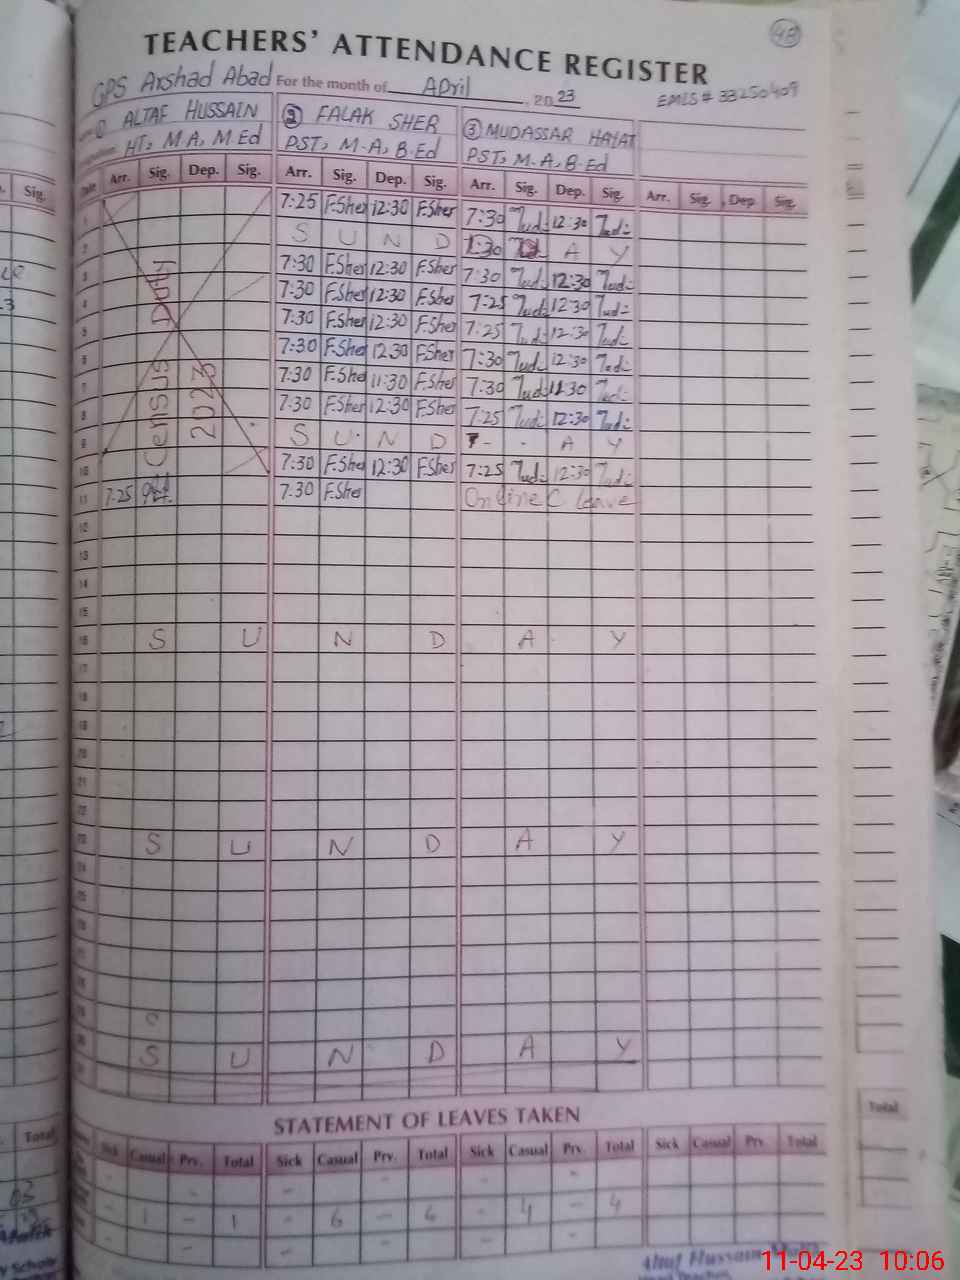 48
TEACHERS' ATTENDANCE REGISTER
GPS Arshad Abad For the month of April, 2023 EMIS # 33250409
① ALTAF HUSSAIN ② FALAK SHER ③ MUDASSAR HAYAT
HT, M A, M.Ed PST, M.A, B.Ed PST, M.A, B.Ed
Date Arr. Sig. Dep. Sig. Arr. Sig. Dep. Sig. Arr. Sig. Dep. Sig. Arr. Sig. Dep. Sig.
Census Duty
2023
1 7:25 F.Sher 12:30 F.Sher 7:30 12:30
2 S U N D 7:30 A Y
3 7:30 F.Sher 12:30 F.Sher 7:30 12:30
4 7:30 F.Sher 12:30 F.Sher 7:25 12:30
5 7:30 F.Sher 12:30 F.Sher 7:25 12:30
6 7:30 F.Sher 12.30 F.Sher 7:30 12:30
7 7:30 F.Sher 11:30 F.Sher 7:30 11:30
8 7:30 F.Sher 12:30 F.Sher 7:25 12:30
9 S U N D A Y
10 7:30 F.Sher 12:30 F.Sher 7:25 12:30
11 7:25 7:30 F.Sher Online C leave
12
13
14
15
16 S U N D A Y
17
18
19
20
21
22
23 S U N D A Y
24
25
26
27
28
29
30 S U N D A Y
31
STATEMENT OF LEAVES TAKEN
Sick Casual Prv. Total Sick Casual Prv. Total Sick Casual Prv. Total Sick Casual Prv. Total
- - - - -
- 1 - 1 - 6 - 6 - 4 - 4
- - - -
Altaf Hussain
Head Teacher
Sig.
Total
Total
11-04-23 10:06